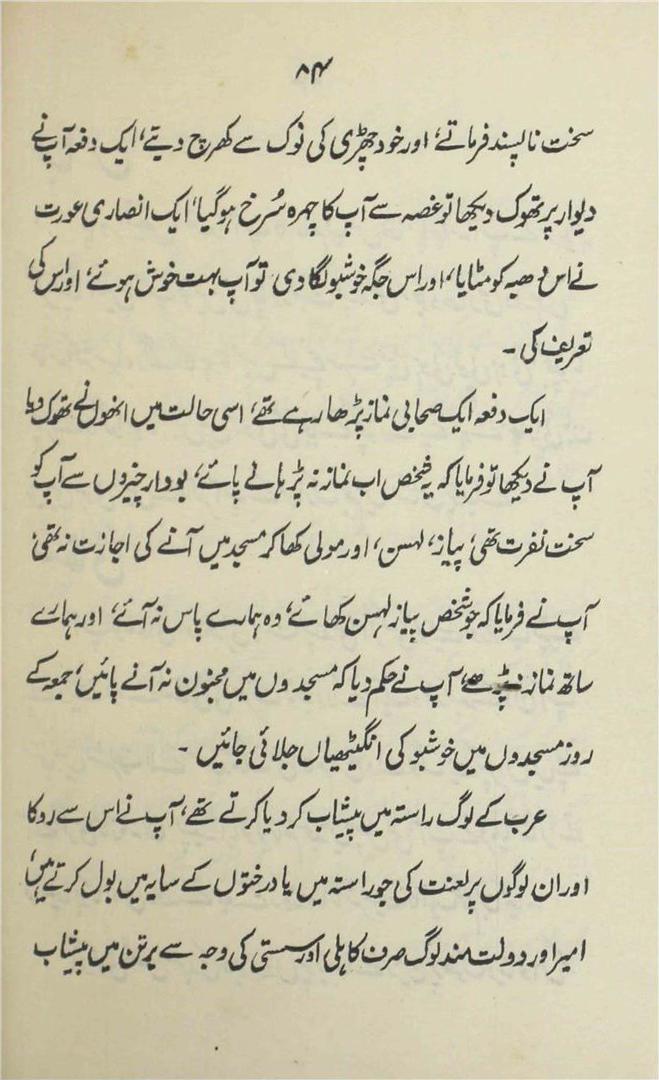 ۸۴
سخت ناپسند فرماتے، اور خود چھڑی کی نوک سے کھرچ دیتے، ایک دفعہ آپ نے
دیوار پر تھوک دیکھا تو غصہ سے آپ کا چہرہ سُرخ ہو گیا، ایک انصاری عورت
نے اس دھبہ کو مٹایا، اور اس جگہ خوشبو لگا دی تو آپ بہت خوش ہوئے، اور اس کی
تعریف کی ۔
ایک دفعہ ایک صحابی نماز پڑھا رہے تھے، اسی حالت میں انھوں نے تھوک دیا
آپ نے دیکھا تو فرمایا کہ یہ شخص اب نماز نہ پڑہانے پائے، بودار چیزوں سے آپ کو
سخت نفرت تھی، پیاز، لہسن، اور مولی کھا کر مسجد میں آنے کی اجازت نہ تھی،
آپ نے فرمایا کہ جو شخص پیاز لہسن کھائے، وہ ہمارے پاس نہ آئے، اور ہمارے
ساتھ نماز نہ پڑھے، آپ نے حکم دیا کہ مسجدوں میں مجنون نہ آنے پائیں، جمعہ کے
روز مسجدوں میں خوشبو کی انگیٹھیاں جلائی جائیں ۔
عرب کے لوگ راستہ میں پیشاب کر دیا کرتے تھے، آپ نے اس سے روکا
اور ان لوگوں پر لعنت کی جو راستہ میں یا درختوں کے سایہ میں بول کرتے ہیں،
امیر اور دولت مند لوگ صرف کاہلی اور سستی کی وجہ سے برتن میں پیشاب